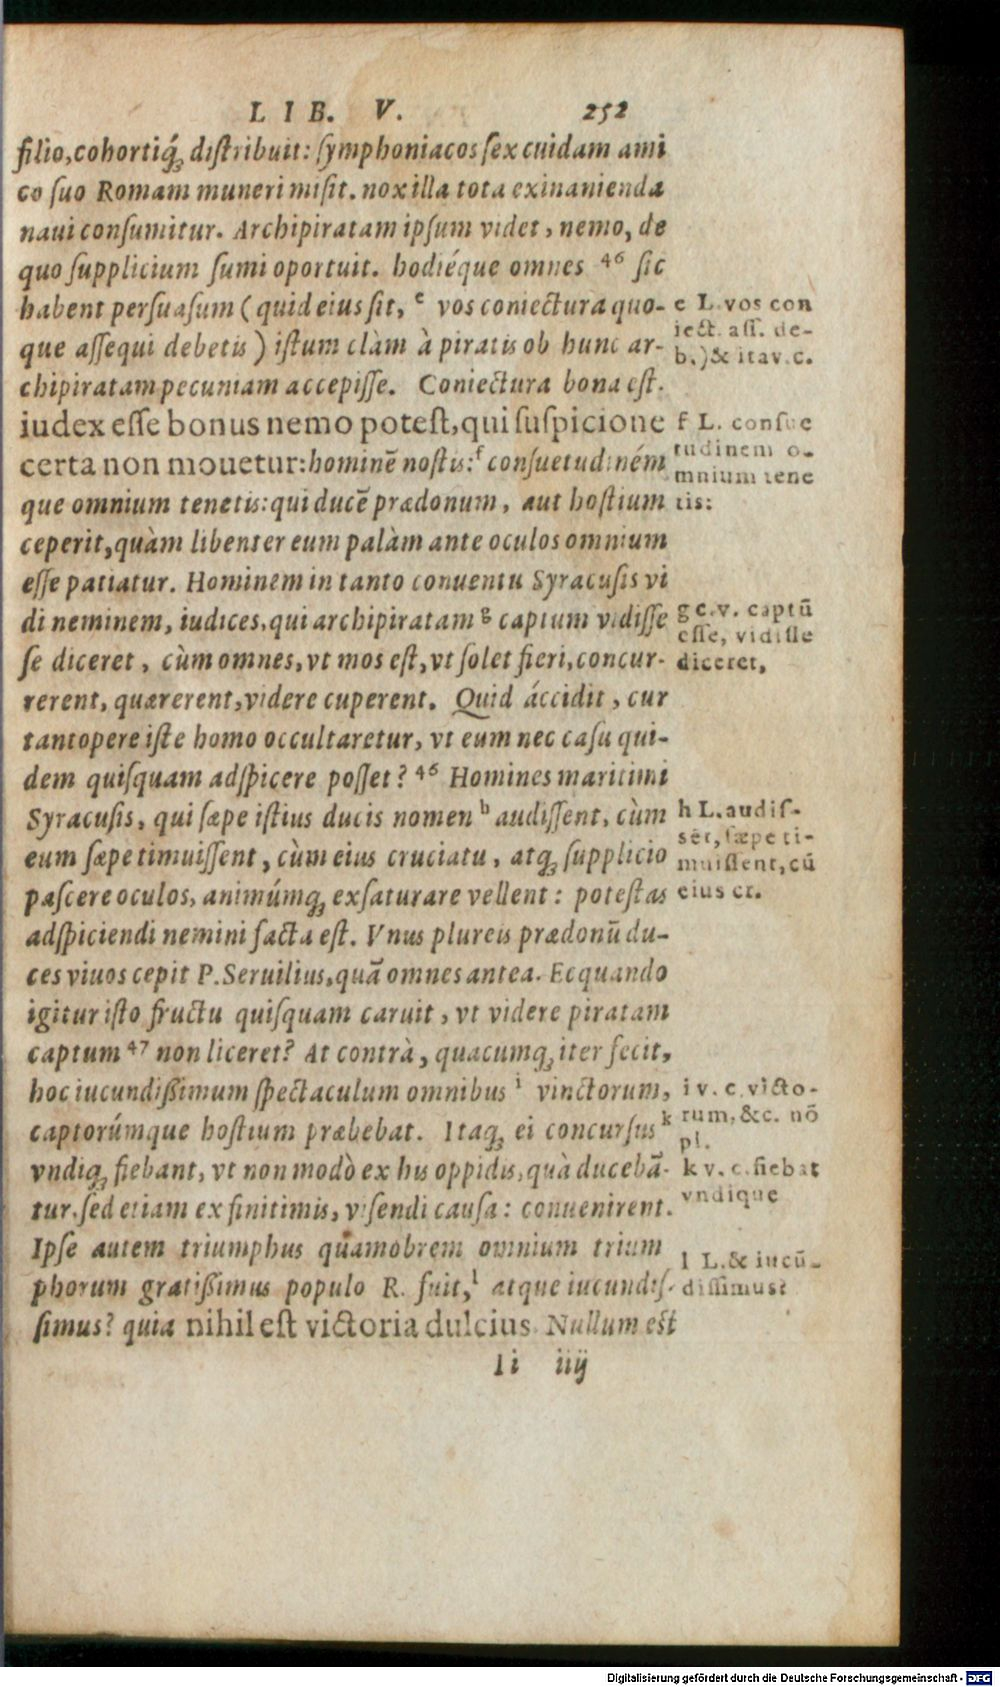 LIB. V. 252
filio,cohortiq́ꝫ diſtribuit: ſymphoniacos ſex cuidam ami
co ſuo Romam muneri miſit. nox illa tota exinanienda
naui conſumitur. Archipiratam ipſum videt, nemo, de
quo ſupplicium ſumi oportuit. hodiéque omnes 46 ſic
habent perſuaſum (quid eius ſit, e vos coniectura quo-
que aſſequi debetis) iſtum clàm à piratis ob hunc ar-
chipiratam pecuniam accepiſſe. Coniectura bona eſt.
iudex eſſe bonus nemo poteſt, qui ſuſpicione
certa non mouetur: hominē noſtis: f conſuetudiném
que omnium tenetis: qui ducē prædonum, aut hoſtium
ceperit, quàm libenter eum palàm ante oculos omnium
eſſe patiatur. Hominem in tanto conuentu Syracuſis vi
di neminem, iudices, qui archipiratam g captum vidiſſe
ſe diceret, cùm omnes, vt mos eſt, vt ſolet fieri, concur-
rerent, quærerent, videre cuperent. Quid áccidit, cur
tantopere iſte homo occultaretur, vt eum nec caſu qui-
dem quiſquam adſpicere poſſet? 46 Homines maritimi
Syracuſis, qui ſæpe iſtius ducis nomen h audiſſent, cùm
eum ſæpe timuiſſent, cùm eius cruciatu, atqꝫ ſupplicio
paſcere oculos, animúmqꝫ exſaturare vellent: poteſtas
adſpiciendi nemini facta eſt. Vnus plureis prædonū du-
ces viuos cepit P. Seruilius, quā omnes antea. Ecquando
igitur iſto fructu quiſquam caruit, vt videre piratam
captum 47 non liceret? At contrà, quacumqꝫ iter fecit,
hoc iucundiſſimum ſpectaculum omnibus i vinctorum,
captorúmque hoſtium præbebat. Itaqꝫ ei concurſus k
vndiqꝫ fiebant, vt non modò ex his oppidis, quà ducebā-
tur, ſed etiam ex finitimis, viſendi cauſa: conuenirent.
Ipſe autem triumphus quamobrem omnium trium
phorum gratiſſimus populo R. fuit, l atque iucundiſ-
ſimus? quia nihil eſt victoria dulcius. Nullum eſt
Ii iiij
e L. vos con
iect. aſſ. de-
b.) & ita v. c.
f L. conſue
tudinem o-
mnium tene
tis:
g c. v. captū
eſſe, vidiſſe
diceret,
h L. audiſ-
sēt, ſæpe ti-
muiſſent, cū
eius cr.
i v. c. victo-
rum, &c. nō
pl.
k v. c. fiebat
vndique
l L. & iucū-
diſſimus?
Digitalisierung gefördert durch die Deutsche Forschungsgemeinschaft - DFG